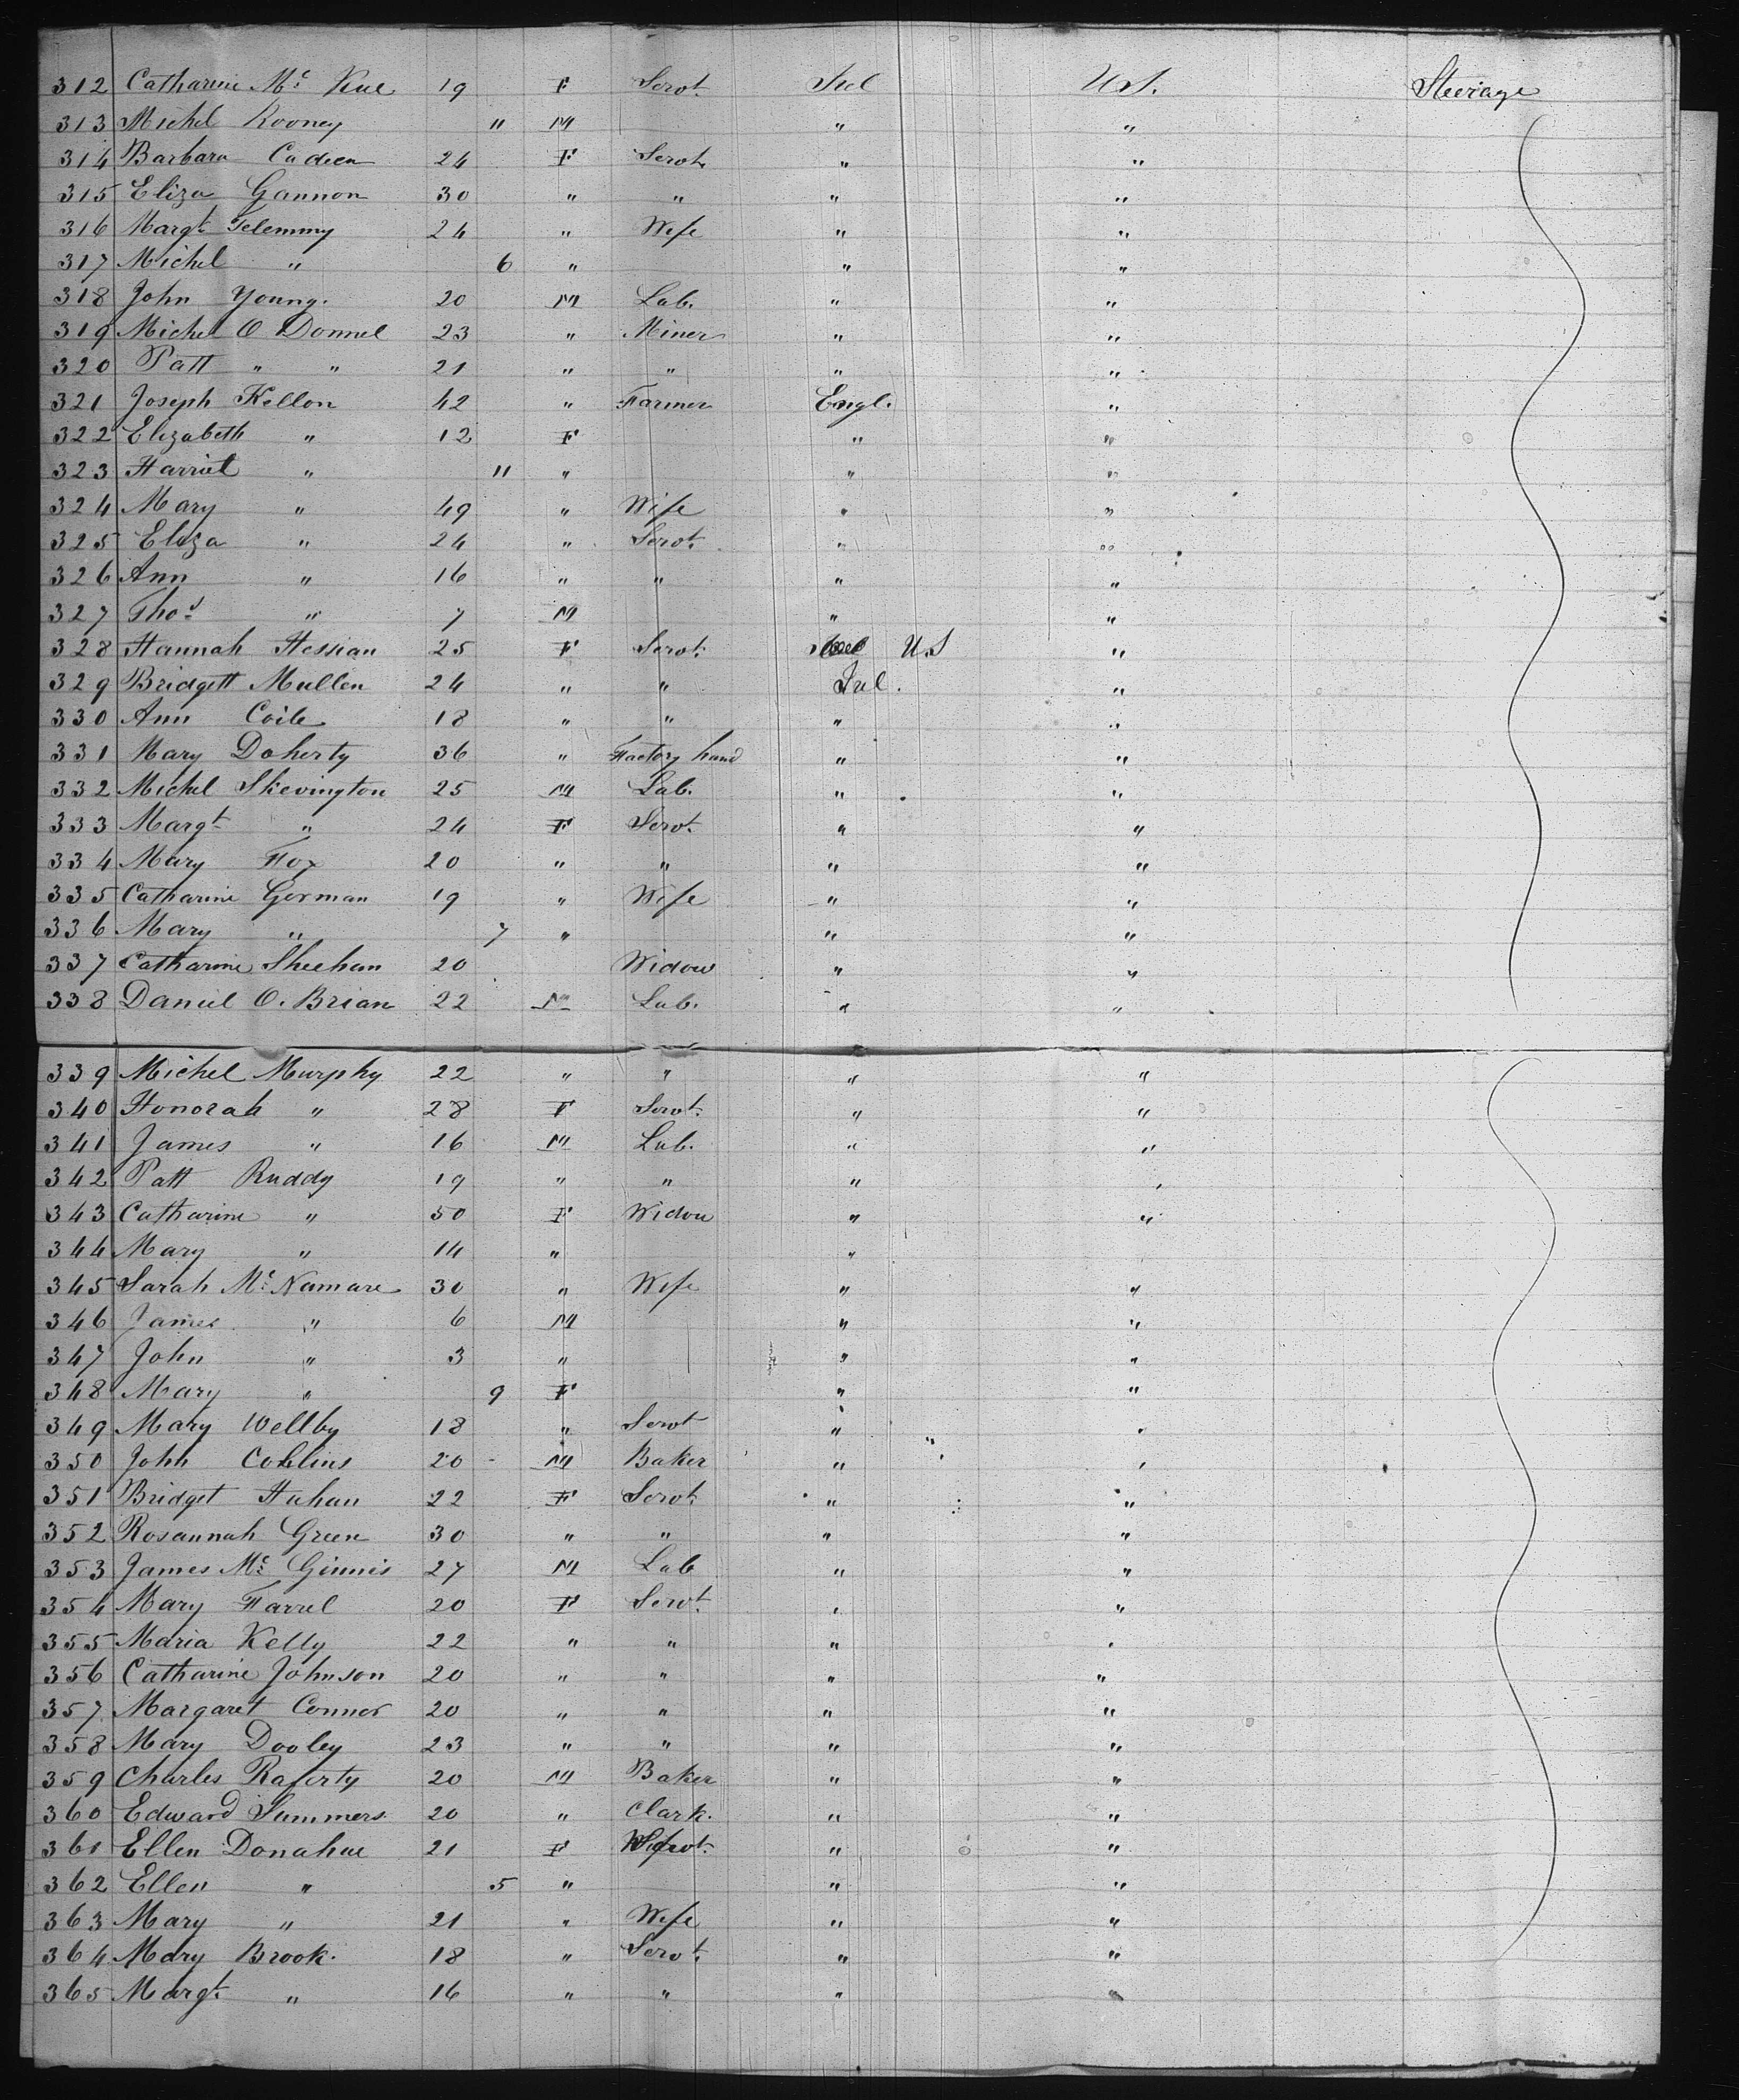 312 Catharine Mc Kue 19 F Servt. Irel U.S. Steerage
313 Michel Rooney 11 M " "
314 Barbara Cadden 24 F Servt. " "
315 Eliza Gannon 30 " " " "
316 Margt. Telemmy 24 " Wife " "
317 Michel " 6 " " "
318 John Young. 20 M Lab. " "
319 Michel O Donnel 23 " Miner " "
320 Patt " " 21 " " " "
321 Joseph Kellon 42 " Farmer Engl. "
322 Elizabeth " 12 F " "
323 Harriet " 11 " " "
324 Mary " 49 " Wife " "
325 Eliza " 24 " Servt. " "
326 Ann " 16 " " " "
327 Thos " 7 M " "
328 Hannah Hessian 25 F Servt. U.S "
329 Bridgett Mullen 24 " " Irel. "
330 Ann Coile 18 " " " "
331 Mary Doherty 36 " Factory hand " "
332 Michel Skevington 25 M Lab. " "
333 Margt. " 24 F Servt. " "
334 Mary Fox 20 " " " "
335 Catharine Gorman 19 " Wife " "
336 Mary " 7 " " "
337 Catharine Sheehan 20 Widow " "
338 Daniel O. Brian 22 M Lab. " "
339 Michel Murphy 22 " " " "
340 Honorah " 28 F Servt. " "
341 James " 16 M Lab. " "
342 Patt Ruddy 19 " " " "
343 Catharine " 50 F Widow " "
344 Mary " 14 " "
345 Sarah Mc Namare 30 " Wife " "
346 James " 6 M " "
347 John " 3 " " "
348 Mary " 9 F " "
349 Mary Wellby 18 " Servt " "
350 John Collins 20 M Baker " "
351 Bridget Hahan 22 F Servt. " "
352 Rosannah Green 30 " " " "
353 James Mc Ginnis 27 M Lab " "
354 Mary Farrel 20 F Servt. " "
355 Maria Kelly 22 " " " "
356 Catharine Johnson 20 " " " "
357 Margaret Connor 20 " " " "
358 Mary Dooley 23 " " " "
359 Charles Raferty 20 M Baker " "
360 Edward Summers 20 " Clark. " "
361 Ellen Donahue 21 F Servt. " "
362 Ellen " 5 " " "
363 Mary " 21 " Wife " "
364 Mary Brook. 18 " Servt. " "
365 Margt. " 16 " " " "